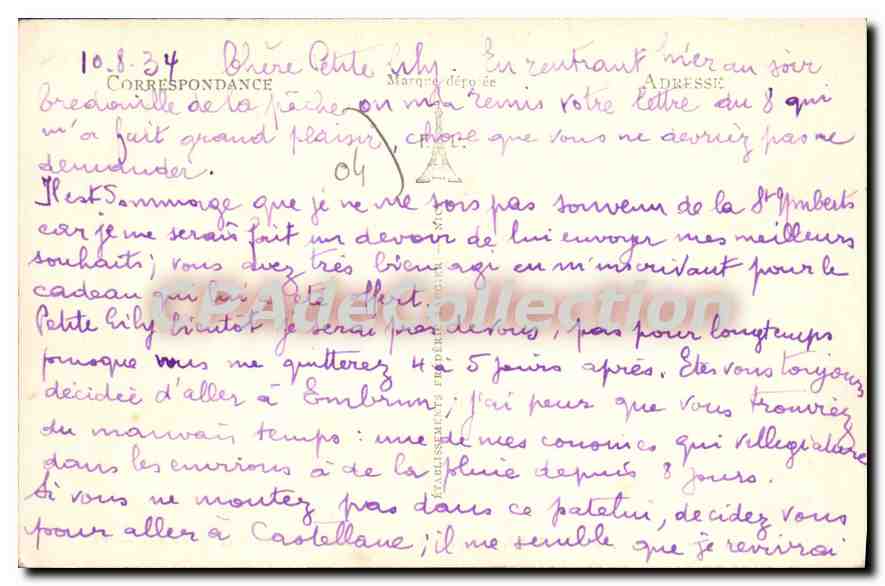 10-8-34 Chère Petite Lily. En rentrant hier au soir
CORRESPONDANCE Marque déposée ADRESSE
bredouille de la pêche on m'a remis votre lettre du 8 qui
m'a fait grand plaisir, chose que vous ne devriez pas me
demander.
04
Il est dommage que je ne me sois pas souvenu de la St Ymberts
car je me serais fait un devoir de lui envoyer mes meilleurs
souhaits; vous avez très bien agi en m'inscrivant pour le
cadeau qui lui a été offert.
CPAdeCollection
Petite Lily bientôt je serai près de vous, pas pour longtemps
puisque vous me quitterez 4 à 5 jours après. Etes vous toujours
décidée d'aller à Embrun; j'ai peur que vous trouviez
du mauvais temps: une de mes cousines qui villégiature
dans les environs a de la pluie depuis 8 jours.
Si vous ne montez pas dans ce patelin, décidez vous
pour aller à Castellane; il me semble que je revivrai
ÉTABLISSEMENTS FRÉDÉRIC LAUGIER - NICE